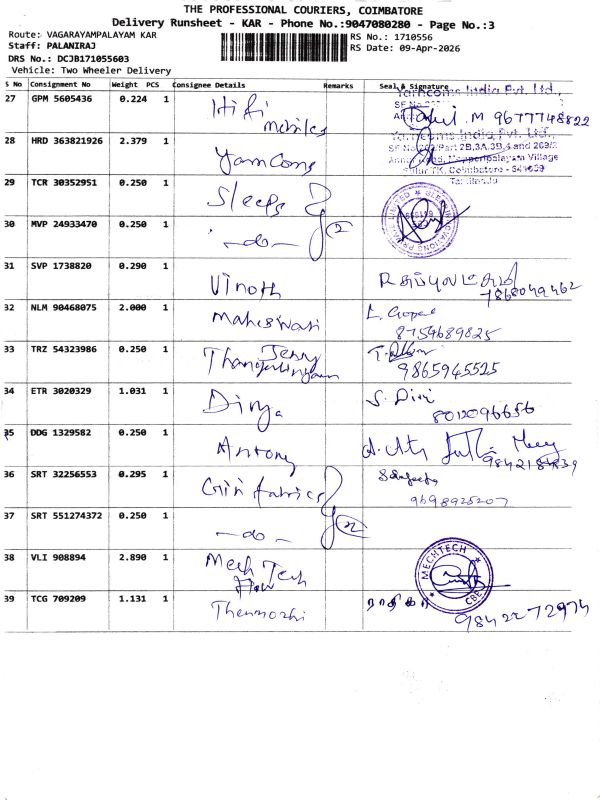 THE PROFESSIONAL COURIERS, COIMBATORE
Delivery Runsheet - KAR - Phone No.:9047080280 - Page No.:3
Route: VAGARAYAMPALAYAM KAR
RS No.: 1710556
Staff: PALANIRAJ
RS Date: 09-Apr-2026
DRS No.: DCJB171055603
Vehicle: Two Wheeler Delivery
S No Consignment No Weight PCS Consignee Details Remarks Seal & Signature
Yarncoms India Pvt. Ltd.,
27 GPM 5605436 0.224 1 Hifi mobiles M 9677748822
Yarncoms India Pvt. Ltd.,
28 HRD 363821926 2.379 1 Yarn Coms
Part 2B,3A,3B,4 and 269/2
Village
Sulur TK, Coimbatore - 641659
Tamilnadu
29 TCR 30352951 0.250 1 Sleeps
30 MVP 24933470 0.250 1 -do- 2
31 SVP 1738820 0.290 1 Vinoth 7868049462
32 NLM 90468075 2.000 1 Maheswari L. Gopal
8754689825
33 TRZ 54323986 0.250 1 Jenny
9865945525
34 ETR 3020329 1.031 1 Divya S. Divi
8012096656
35 DDG 1329582 0.250 1 Antony
36 SRT 32256553 0.295 1 Giri fabrics
9698925207
37 SRT 551274372 0.250 1 -do- 2
38 VLI 908894 2.890 1 Mech Tech
MECHTECH
CBE
39 TCG 709209 1.131 1 Thenmozhi ராதிகா